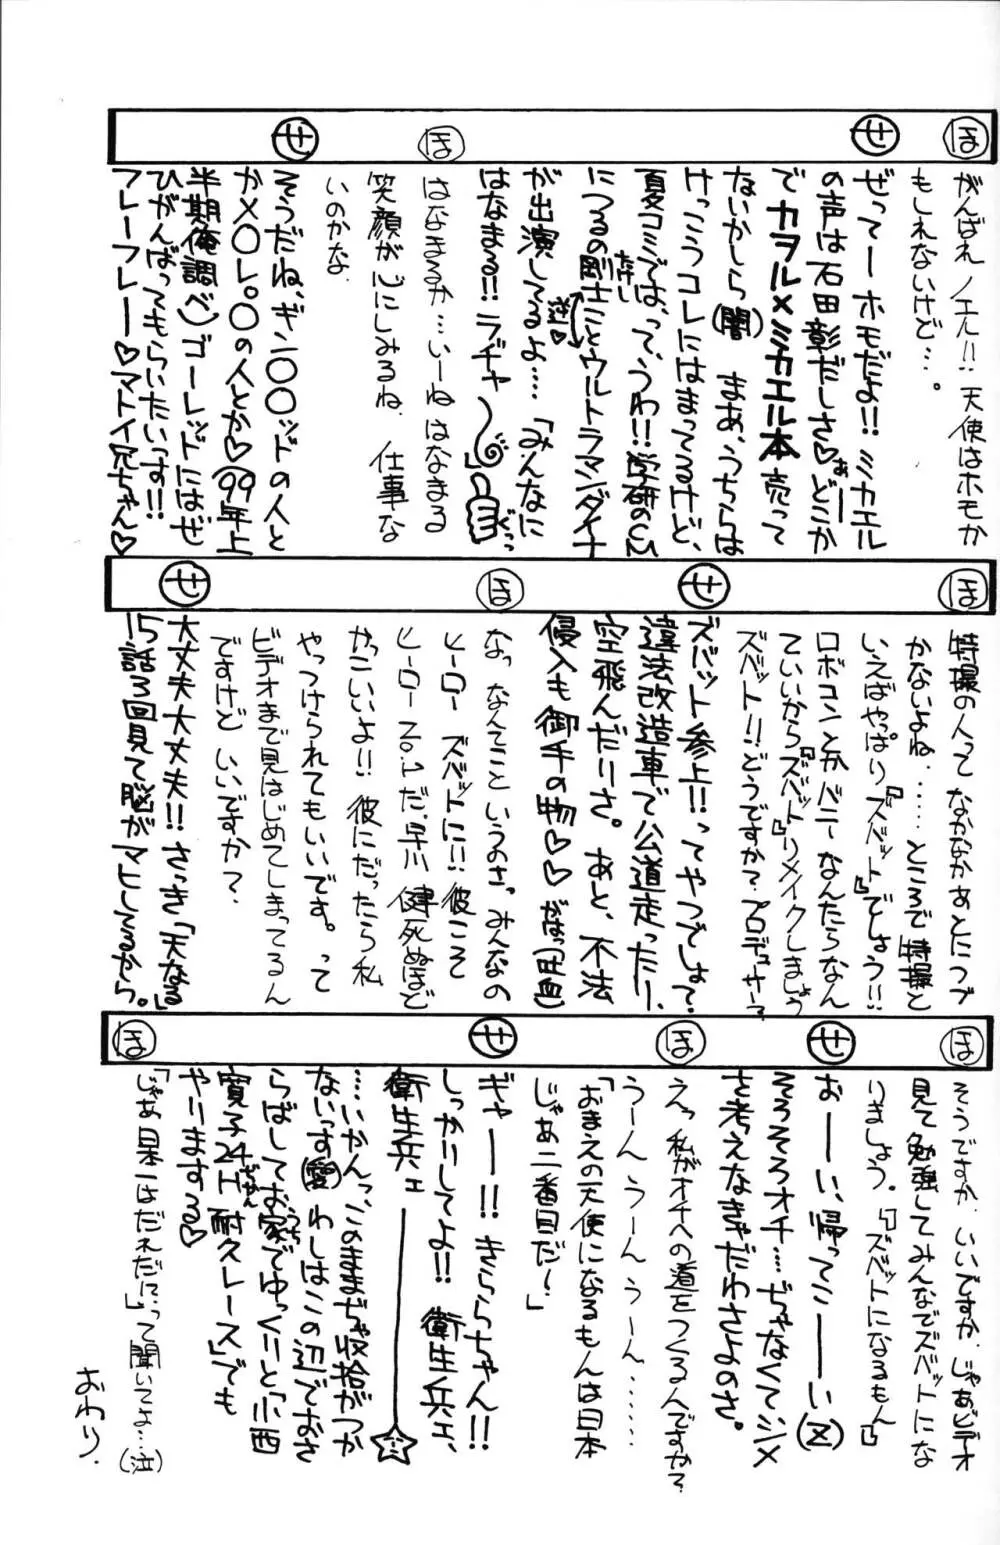 ほ
がんばれノエル!!天使はホモか
もしれないけど…。
せ
ぜってーホモだよ!!ミカエル
の声は石田彰だしさ♡どこか
でカヲル×ミカエル本売って
ないかしら(闇) まあ、うちらは
けっこうコレにはまってるけど、
夏コミでばって、うわ!!学研のCM
につるの剛士ことウルトラマンダイナ
が出演してるよ……「みんなに
はなまる!!ラヂャ〜」
ぐっっ
ほ
はなまるか…いーねはなまる
笑顔が心にしみるね、仕事な
いのかな
せ
そうだね、ギン〇〇〇ッドの人と
かメ〇レ〇〇の人とか♡(99年上
半期俺調べ)ゴーレッドにはぜ
ひがんばってもらいたいっす!!
フレーフレー♡マトイ兄ちゃん♡
ほ
特撮の人ってなかなかあとにつづ
かないよね……ところで特撮と
いえばやっぱり『ズバット』でしょう!!
ロボコンとかバニーなんたらなん
ていいから『ズバット』リメイクしましょう
ズバット!!どうですか?プロデューサー?
せ
ズバット参上!!ってやつでしょ?
違法改造車で公道走ったり、
空飛んだりさ。あと、不法
侵入も御手の物♡♡がはっ(吐血)
ほ
なっなんてこというのさっみんなの
ヒーローズバットに!!彼こそ
ヒーローNo.1だ、早川健死ぬほど
かっこいいよ!!彼にだったら私
やっつけられてもいいです。って
ビデオまで見はじめてしまってるん
ですけどいいですか?
せ
大丈夫大丈夫!!さっき「天なる」
15話3回見て脳がマヒしてるから。
ほ
そうですか、いいですか、じゃあビデオ
見て勉強してみんなでズバットにな
りましょう。『「ズバットになるもん」』
せ
おーい、帰ってこーい(Z)
そろそろオチ…ぢゃなくてシメ
を考えなきゃだわさよのさ。
ほ
えっ私がオチへの道をつくる人ですか?
うーんうーんうーん……
「おまえの天使になるもんは日本
じゃあ二番目だ〜」
せ
ギャー!!きららちゃん!!
しっかりしてよ!!衛生兵ェ、
衛生兵ェ
……いかんっ、このままぢゃ収拾がつか
ないっす わしはこの辺でおさ
らばしてお家でゆっくりと「小西
寛子24H耐久レース」でも
やりまする♡
ほ
「じゃあ日本一はだれだ」って聞いてよ…(泣)
おわり.